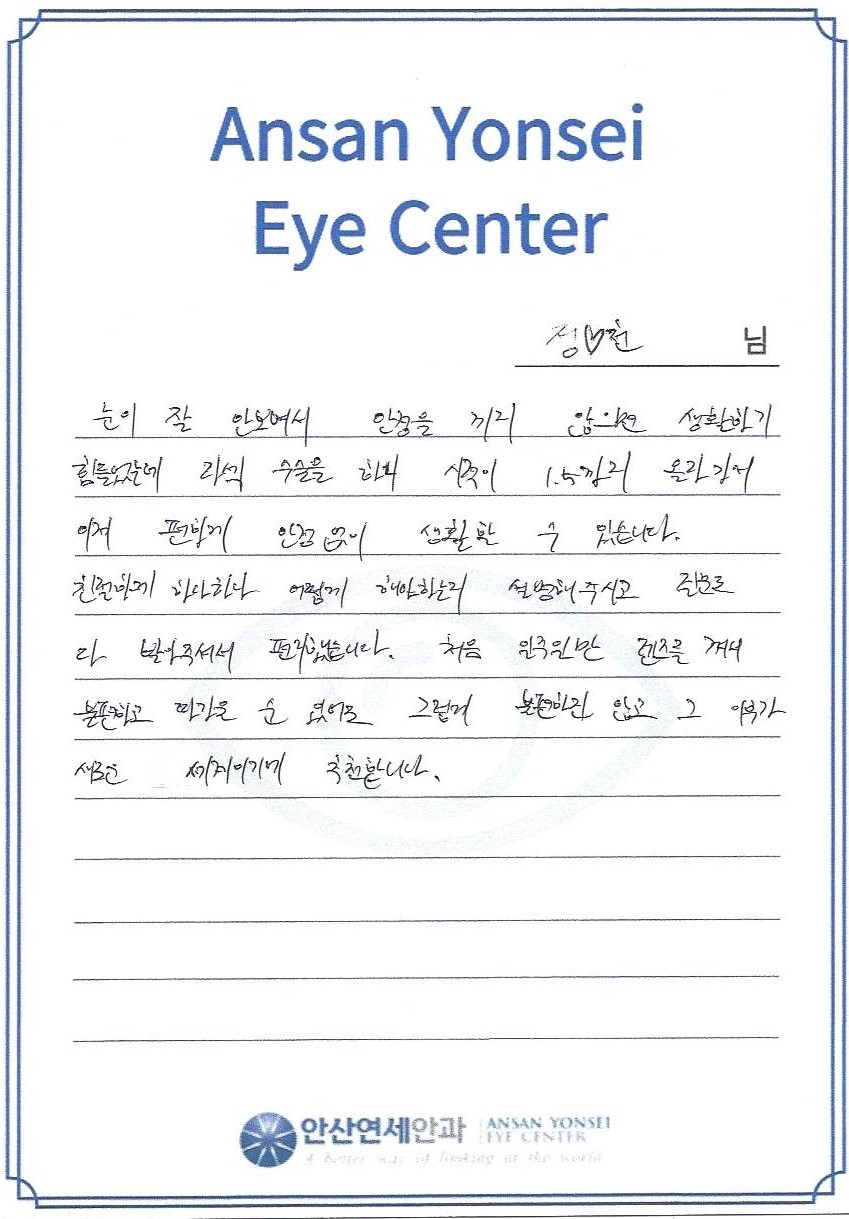 Ansan Yonsei
Eye Center
정♡진 님
눈이 잘 안보여서 안경을 끼지 않으면 생활하기
힘들었는데 라섹 수술을 하니 시력이 1.5까지 올라가서
이제 편하게 안경 없이 생활할 수 있습니다.
친절하게 하나하나 어떻게 해야하는지 설명해주시고 질문도
다 받아주셔서 편리했습니다. 처음 일주일만 렌즈를 껴서
불편하고 따가울 순 있어도 그렇게 불편하진 않고 그 이후가
새로운 세계이기에 추천합니다.
안산연세안과 ANSAN YONSEI
EYE CENTER
A better way of looking at the world